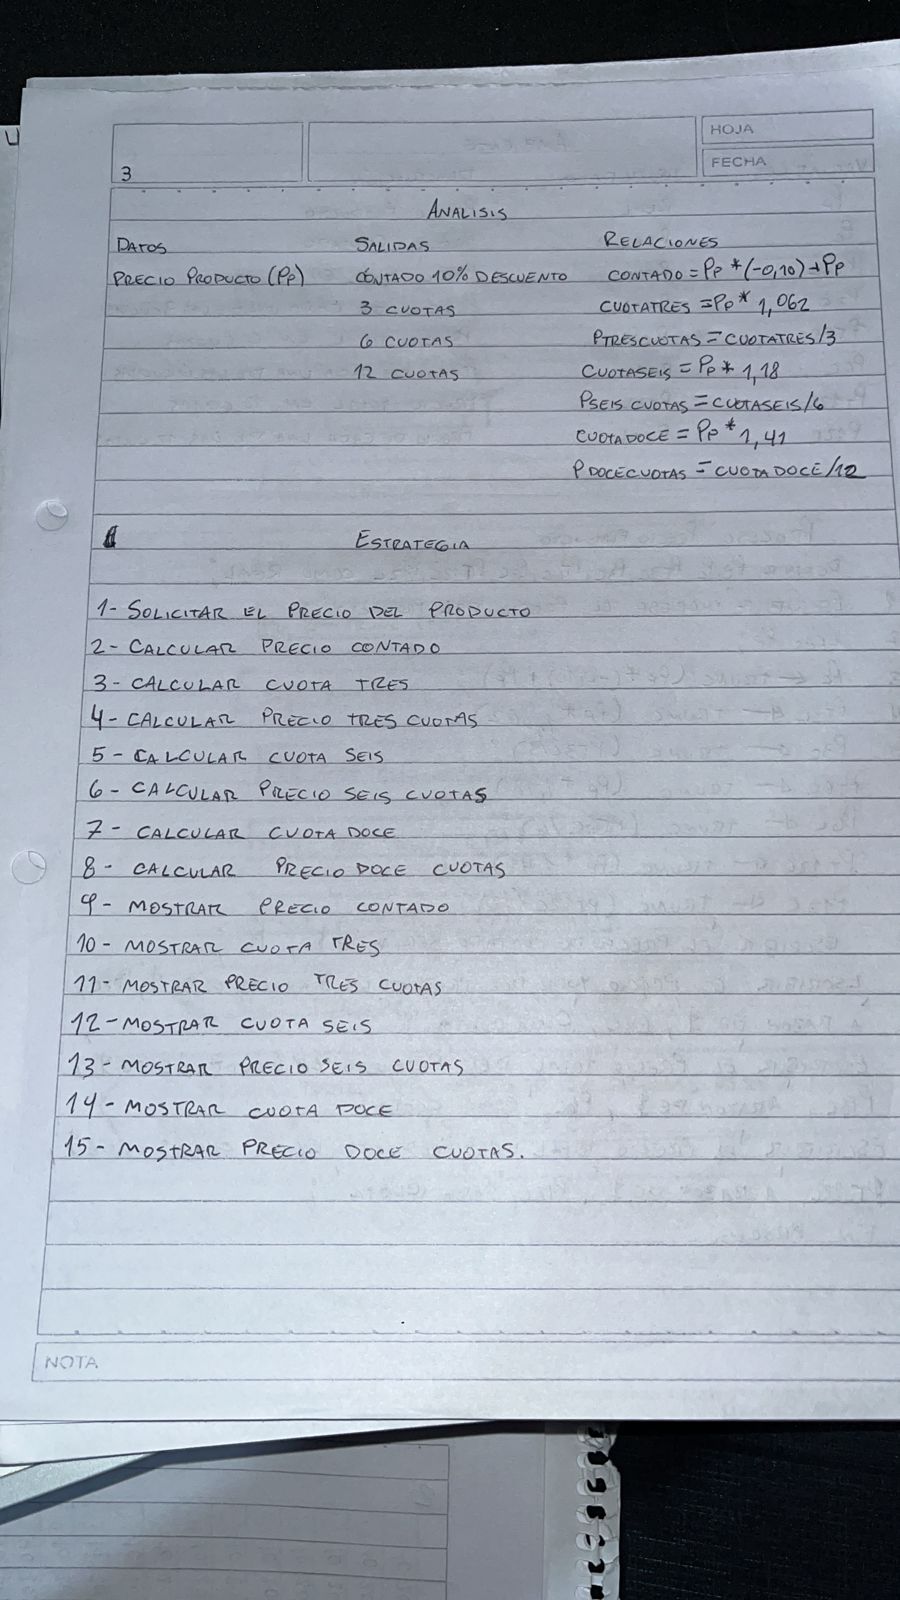 HOJA
FECHA
3
ANALISIS
DATOS SALIDAS RELACIONES
PRECIO PRODUCTO (Pp) CONTADO 10% DESCUENTO CONTADO = Pp * (-0,10) + Pp
3 CUOTAS CUOTATRES = Pp * 1,062
6 CUOTAS PTRESCUOTAS = CUOTATRES/3
12 CUOTAS CUOTASEIS = Pp * 1,18
PSEIS CUOTAS = CUOTASEIS/6
CUOTADOCE = Pp * 1,41
PDOCECUOTAS = CUOTADOCE/12
ESTRATEGIA
1- SOLICITAR EL PRECIO DEL PRODUCTO
2- CALCULAR PRECIO CONTADO
3- CALCULAR CUOTA TRES
4- CALCULAR PRECIO TRES CUOTAS
5- CALCULAR CUOTA SEIS
6- CALCULAR PRECIO SEIS CUOTAS
7- CALCULAR CUOTA DOCE
8- CALCULAR PRECIO DOCE CUOTAS
9- MOSTRAR PRECIO CONTADO
10- MOSTRAR CUOTA TRES
11- MOSTRAR PRECIO TRES CUOTAS
12- MOSTRAR CUOTA SEIS
13- MOSTRAR PRECIO SEIS CUOTAS
14- MOSTRAR CUOTA DOCE
15- MOSTRAR PRECIO DOCE CUOTAS.
NOTA